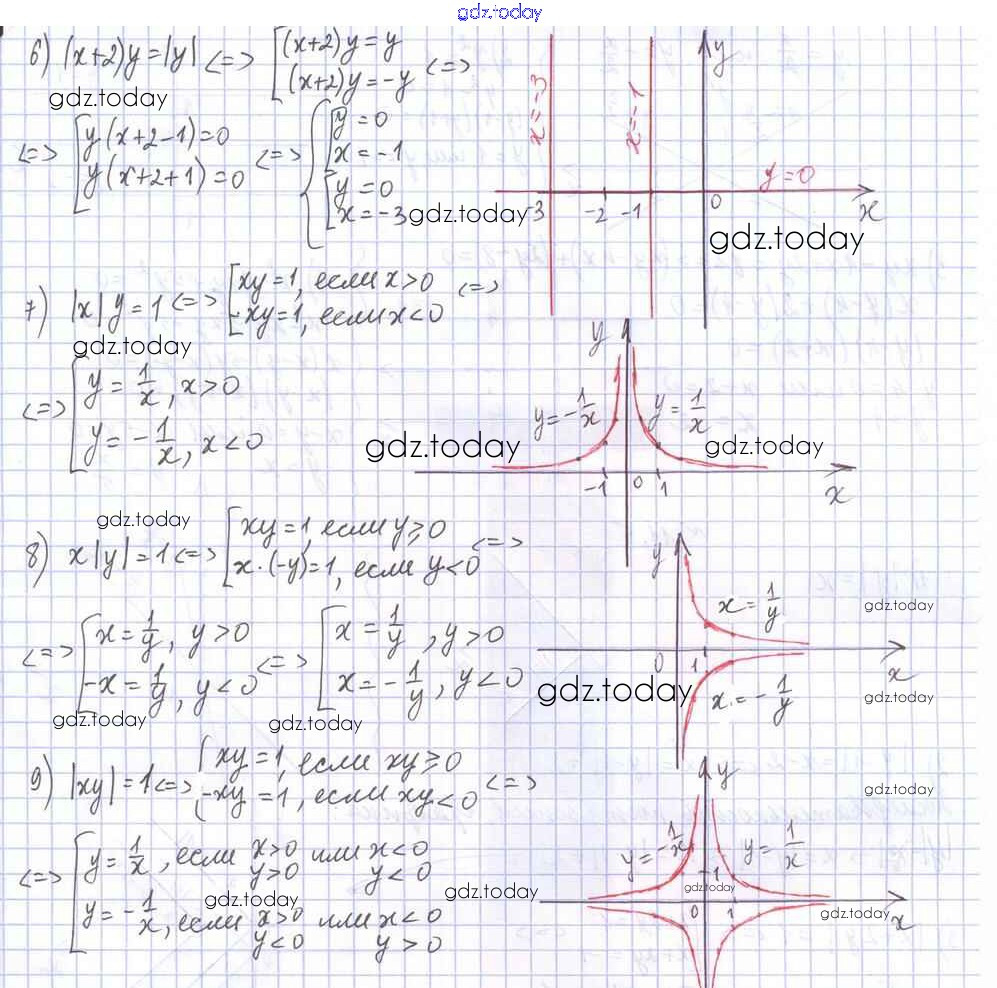 gdz.today
6) (x+2)y=|y| <=> [(x+2)y=y
(x+2)y=-y <=>
gdz.today
<=> [y(x+2-1)=0
y(x+2+1)=0 <=> {[y=0
x=-1
[y=0
x=-3
gdz.today
x=-3
x=-1
y
y=0
-3 -2 -1 0 x
gdz.today
7) |x|y=1 <=> [xy=1, если x>0
-xy=1, если x<0 <=>
gdz.today
<=> [y=1/x, x>0
y=-1/x, x<0
gdz.today
y
y=-1/x y=1/x
gdz.today
-1 0 1 x
gdz.today
8) x|y|=1 <=> [xy=1, если y≥0
x·(-y)=1, если y<0 <=>
<=> [x=1/y, y>0
-x=1/y, y<0 <=> [x=1/y, y>0
x=-1/y, y<0
gdz.today
gdz.today
gdz.today
y
x=1/y
gdz.today
0 1 x
x=-1/y
gdz.today
9) |xy|=1 <=> [xy=1, если xy≥0
-xy=1, если xy<0 <=>
<=> [y=1/x, если x>0 или x<0
y>0 y<0
y=-1/x, если x>0 или x<0
y<0 y>0
gdz.today
gdz.today
gdz.today
y
y=-1/x y=1/x
1
gdz.today
0 1 x
gdz.today